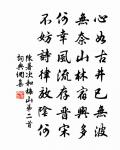 心如古井已無波
無奈山林宿興多
何幸風流存晉宋
不妨詩律敵陰何
陳著次和梅山第二首
詞典網集